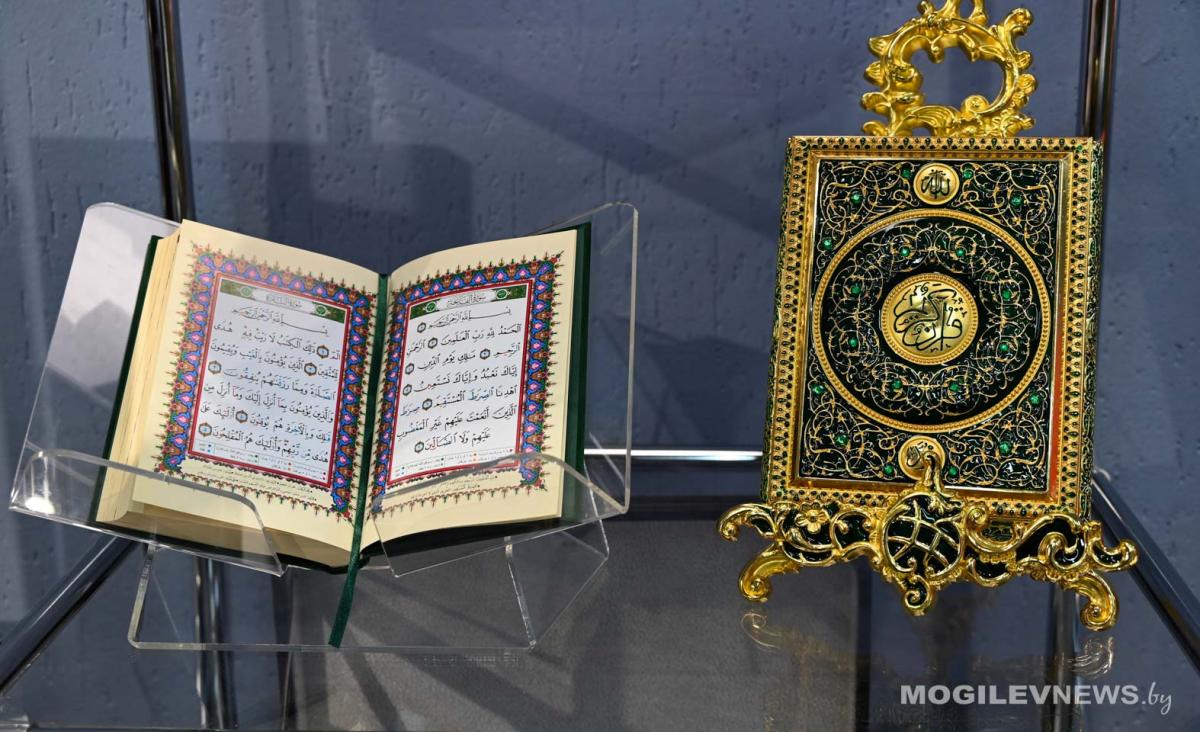 سُورَةُ الفَاتِحَةِ
بِسْمِ ٱللَّهِ ٱلرَّحْمَٰنِ ٱلرَّحِيمِ
ٱلْحَمْدُ لِلَّهِ رَبِّ ٱلْعَٰلَمِينَ ٱلرَّحْمَٰنِ
ٱلرَّحِيمِ مَٰلِكِ يَوْمِ ٱلدِّينِ
إِيَّاكَ نَعْبُدُ وَإِيَّاكَ نَسْتَعِينُ
ٱهْدِنَا ٱلصِّرَٰطَ ٱلْمُسْتَقِيمَ صِرَٰطَ
ٱلَّذِينَ أَنْعَمْتَ عَلَيْهِمْ غَيْرِ ٱلْمَغْضُوبِ
عَلَيْهِمْ وَلَا ٱلضَّآلِّينَ
سُورَةُ البَقَرَةِ
بِسْمِ ٱللَّهِ ٱلرَّحْمَٰنِ ٱلرَّحِيمِ
الٓمٓ ذَٰلِكَ ٱلْكِتَٰبُ لَا رَيْبَ فِيهِ هُدًى
لِّلْمُتَّقِينَ ٱلَّذِينَ يُؤْمِنُونَ بِٱلْغَيْبِ وَيُقِيمُونَ
ٱلصَّلَوٰةَ وَمِمَّا رَزَقْنَٰهُمْ يُنفِقُونَ
وَٱلَّذِينَ يُؤْمِنُونَ بِمَآ أُنزِلَ إِلَيْكَ وَمَآ أُنزِلَ مِن
قَبْلِكَ وَبِٱلْأَخِرَةِ هُمْ يُوقِنُونَ أُو۟لَٰٓئِكَ عَلَىٰ
هُدًى مِّن رَّبِّهِمْ وَأُو۟لَٰٓئِكَ هُمُ ٱلْمُفْلِحُونَ
الله
قرآن كريم
MOGILEVNEWS.by